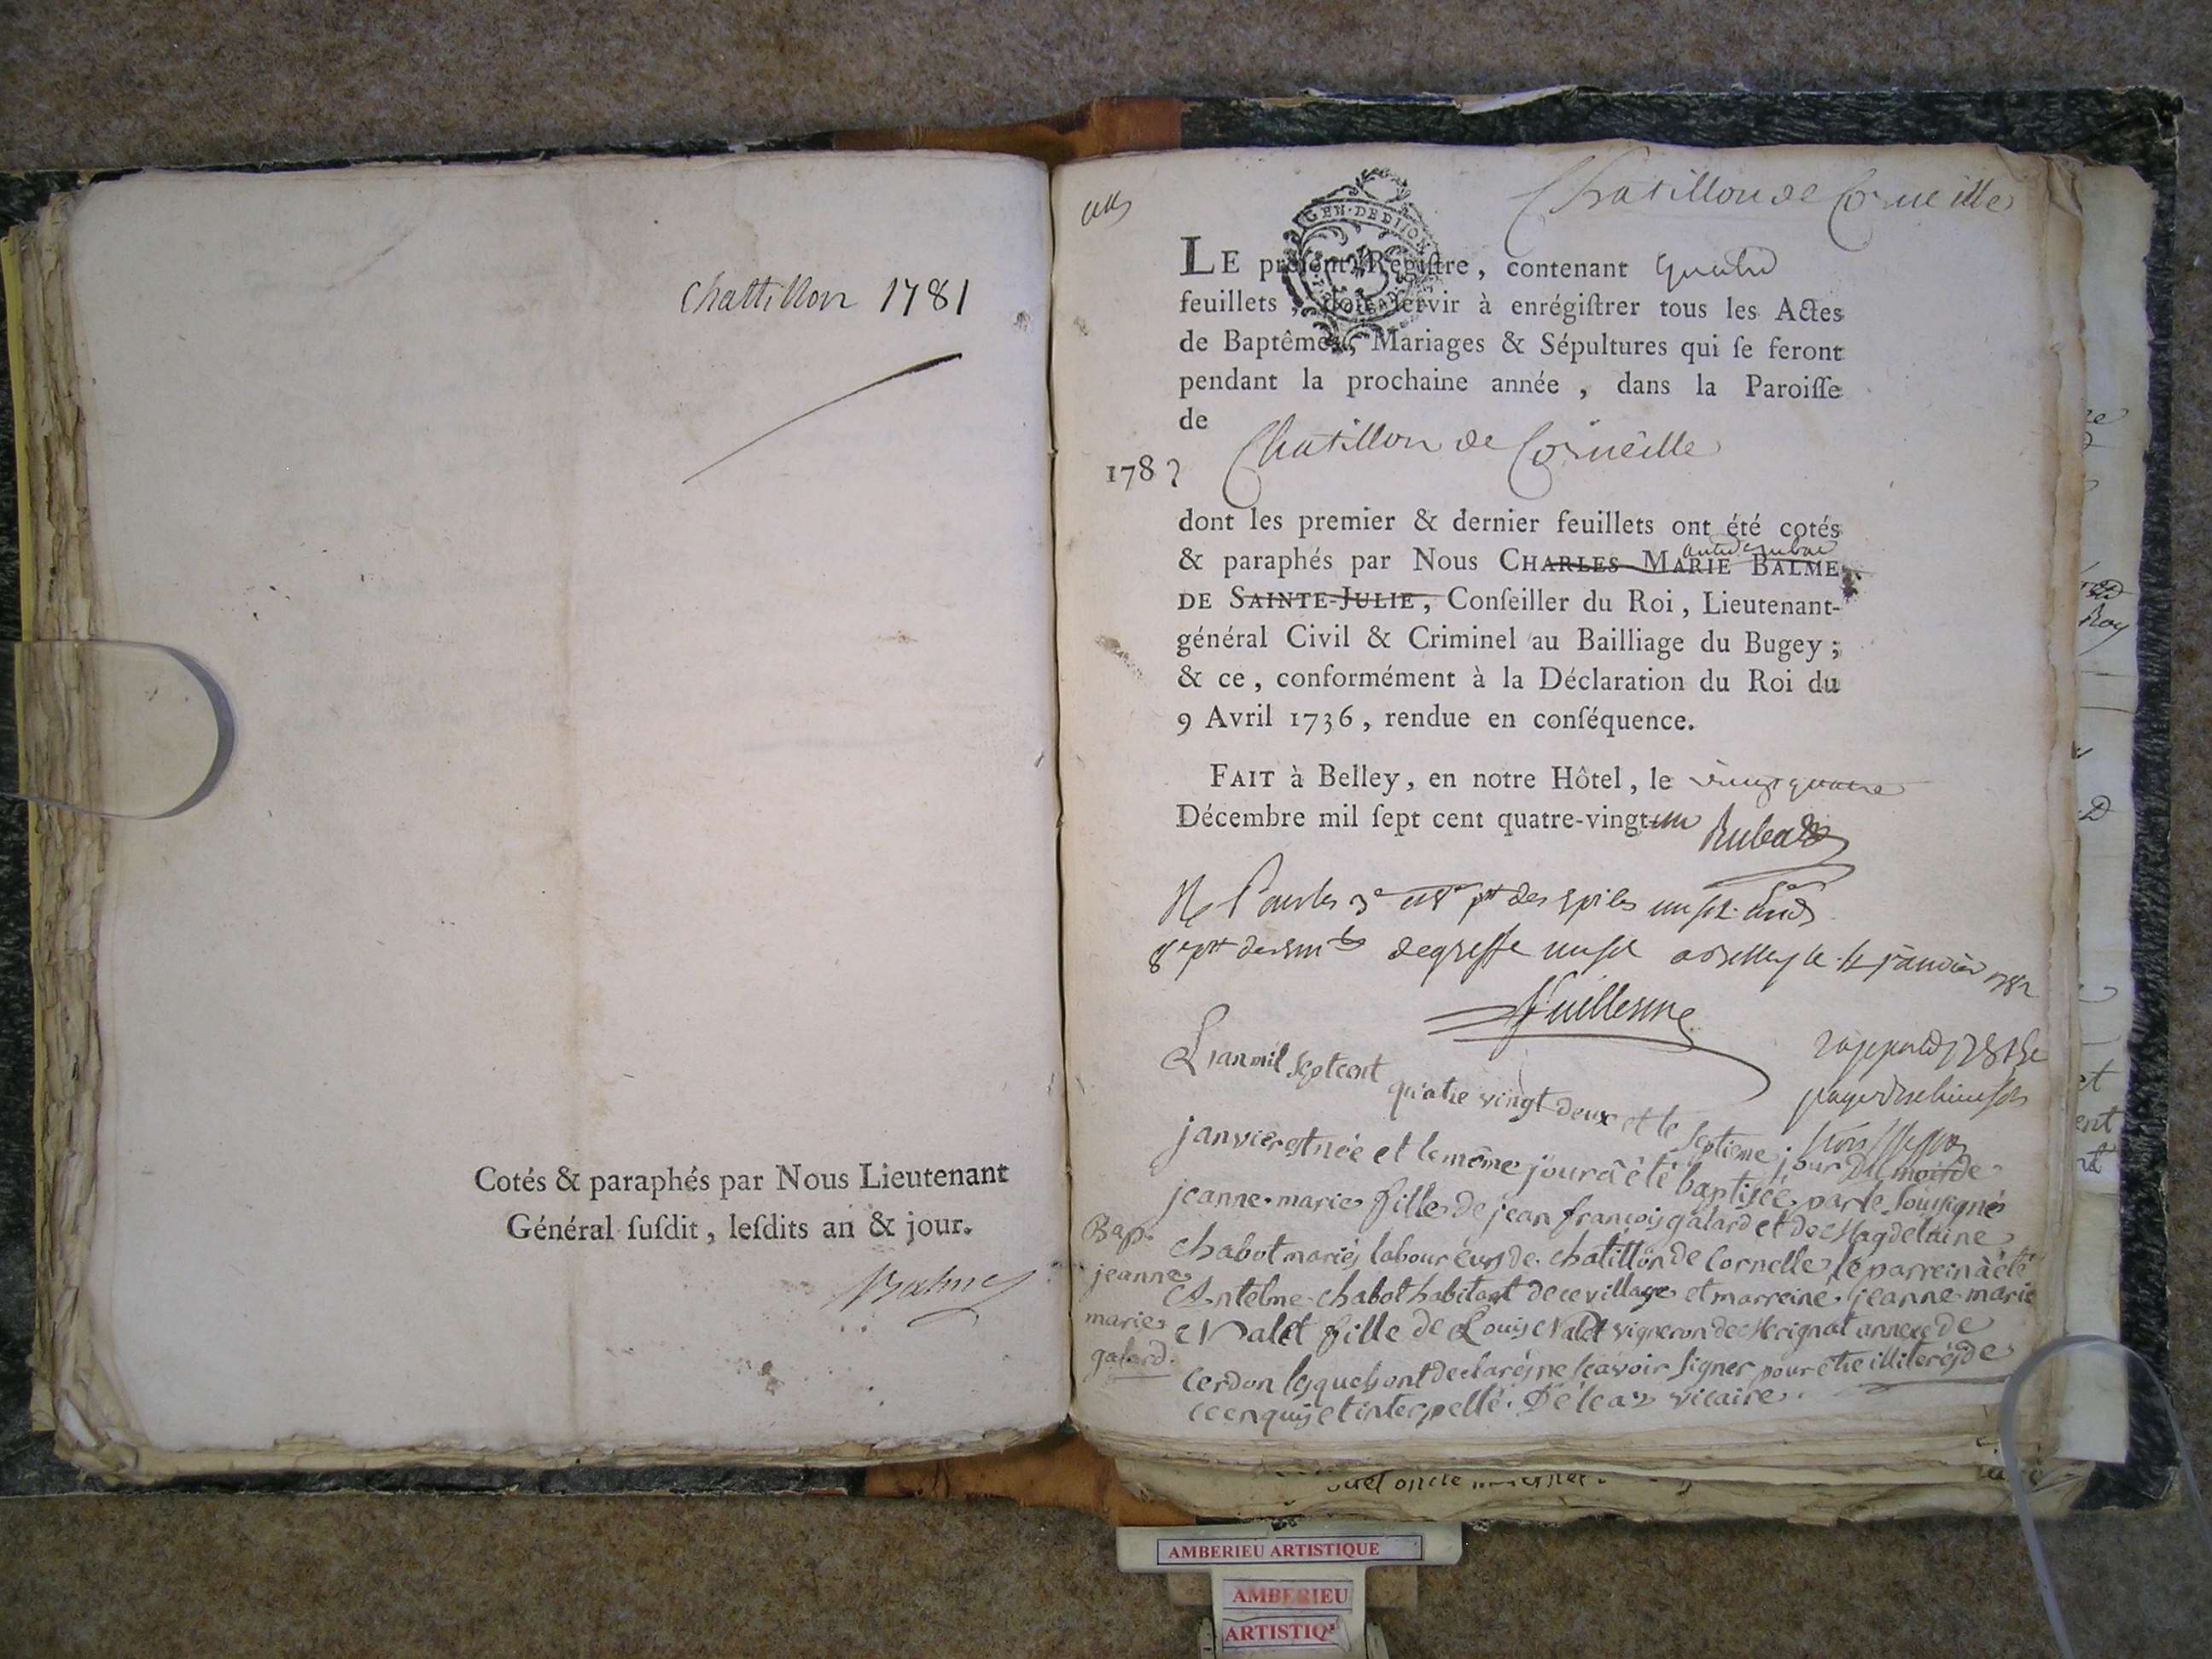 Chattillon 1781
Cotés & paraphés par Nous Lieutenant
Général ſuſdit, leſdits an & jour.
Balme
Chatillon de Corneille
GEN·DE DIJON
LE préſent Regiſtre, contenant quatre
feuillets, doit ſervir à enrégiſtrer tous les Actes
de Baptêmes, Mariages & Sépultures qui ſe feront
pendant la prochaine année, dans la Paroiſſe
de
Chatillon de Corneille
1782
dont les premier & dernier feuillets ont été cotés
& paraphés par Nous CHARLES MARIE BALME
DE SAINTE-JULIE, Conſeiller du Roi, Lieutenant-
général Civil & Criminel au Bailliage du Bugey;
& ce, conformément à la Déclaration du Roi du
9 Avril 1736, rendue en conſéquence.
FAIT à Belley, en notre Hôtel, le vingt quatre
Décembre mil ſept cent quatre-vingt-un
degreffe un sol a Belley le janvier 1782
L'an mil sept cent quatre vingt deux et le septieme jour du mois de
janvier est née et le même jour à été baptisée par le soussigné
jeanne marie fille de jean françois galard et de Magdelaine
chabot mariés laboureurs de chatillon de Cornelle le parrein à été
Antelme chabot habitant de ce village et marreine jeanne marie
Nalet fille de Louis Nalet vigneron de Merignat annexe de
Cerdon lesquels ont declarés ne scavoir signer pour être illiterés de
ce enquis et interpellé. Déléaz vicaire.
Bap.
jeanne
marie
galard.
AMBERIEU ARTISTIQUE
AMBERIEU
ARTISTIQ